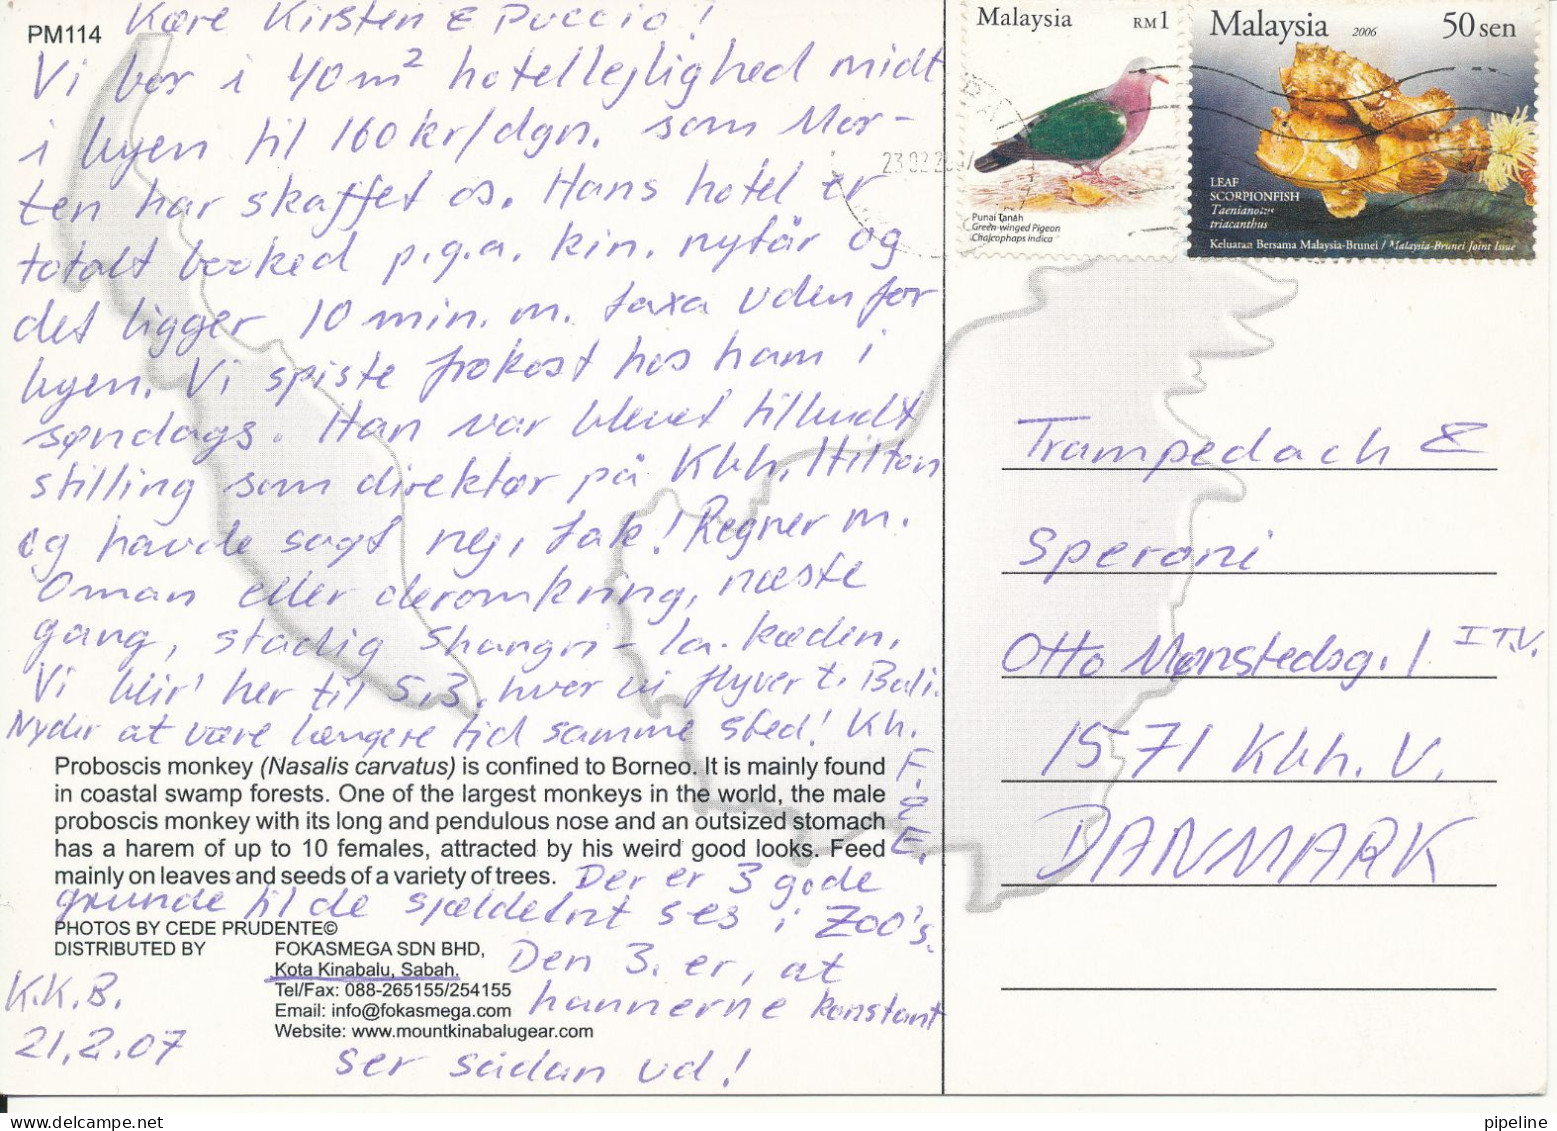 PM114
Kære Kirsten & Puccio!
Vi bor i 40 m² hotellejlighed midt
i byen til 160 kr/dgn. som Mor-
ten har skaffet os. Hans hotel er
totalt booked p.g.a. kin. nytår og
det ligger 10 min. m. taxa udenfor
byen. Vi spiste frokost hos ham i
søndags. Han var blevet tilbudt
stilling som direktør på Kbh. Hilton
og havde sagt nej, tak! Regner m.
Oman eller deromkring, næste
gang, stadig Shangri-la. kæden.
Vi blir' her til 5.3. hvor vi flyver t. Bali.
Nyder at være længere tid samme sted! Kh.
F.
&
E.
Proboscis monkey (Nasalis carvatus) is confined to Borneo. It is mainly found
in coastal swamp forests. One of the largest monkeys in the world, the male
proboscis monkey with its long and pendulous nose and an outsized stomach
has a harem of up to 10 females, attracted by his weird good looks. Feed
mainly on leaves and seeds of a variety of trees.
Der er 3 gode
grunde til de sjældent ses i Zoo's.
Den 3. er, at
hannerne konstant
ser sådan ud!
PHOTOS BY CEDE PRUDENTE©
DISTRIBUTED BY
FOKASMEGA SDN BHD,
Kota Kinabalu, Sabah.
Tel/Fax: 088-265155/254155
Email: info@fokasmega.com
Website: www.mountkinabalugear.com
K.K.B.
21.2.07
Malaysia RM1
Punai Tanah
Green-winged Pigeon
Chalcophaps indica
Malaysia 2006 50 sen
LEAF
SCORPIONFISH
Taenianotus
triacanthus
Keluaran Bersama Malaysia-Brunei / Malaysia-Brunei Joint Issue
Trampedach &
Speroni
Otto Mønstedsg. 1 I T.V.
1571 Kbh. V.
DANMARK
pipeline